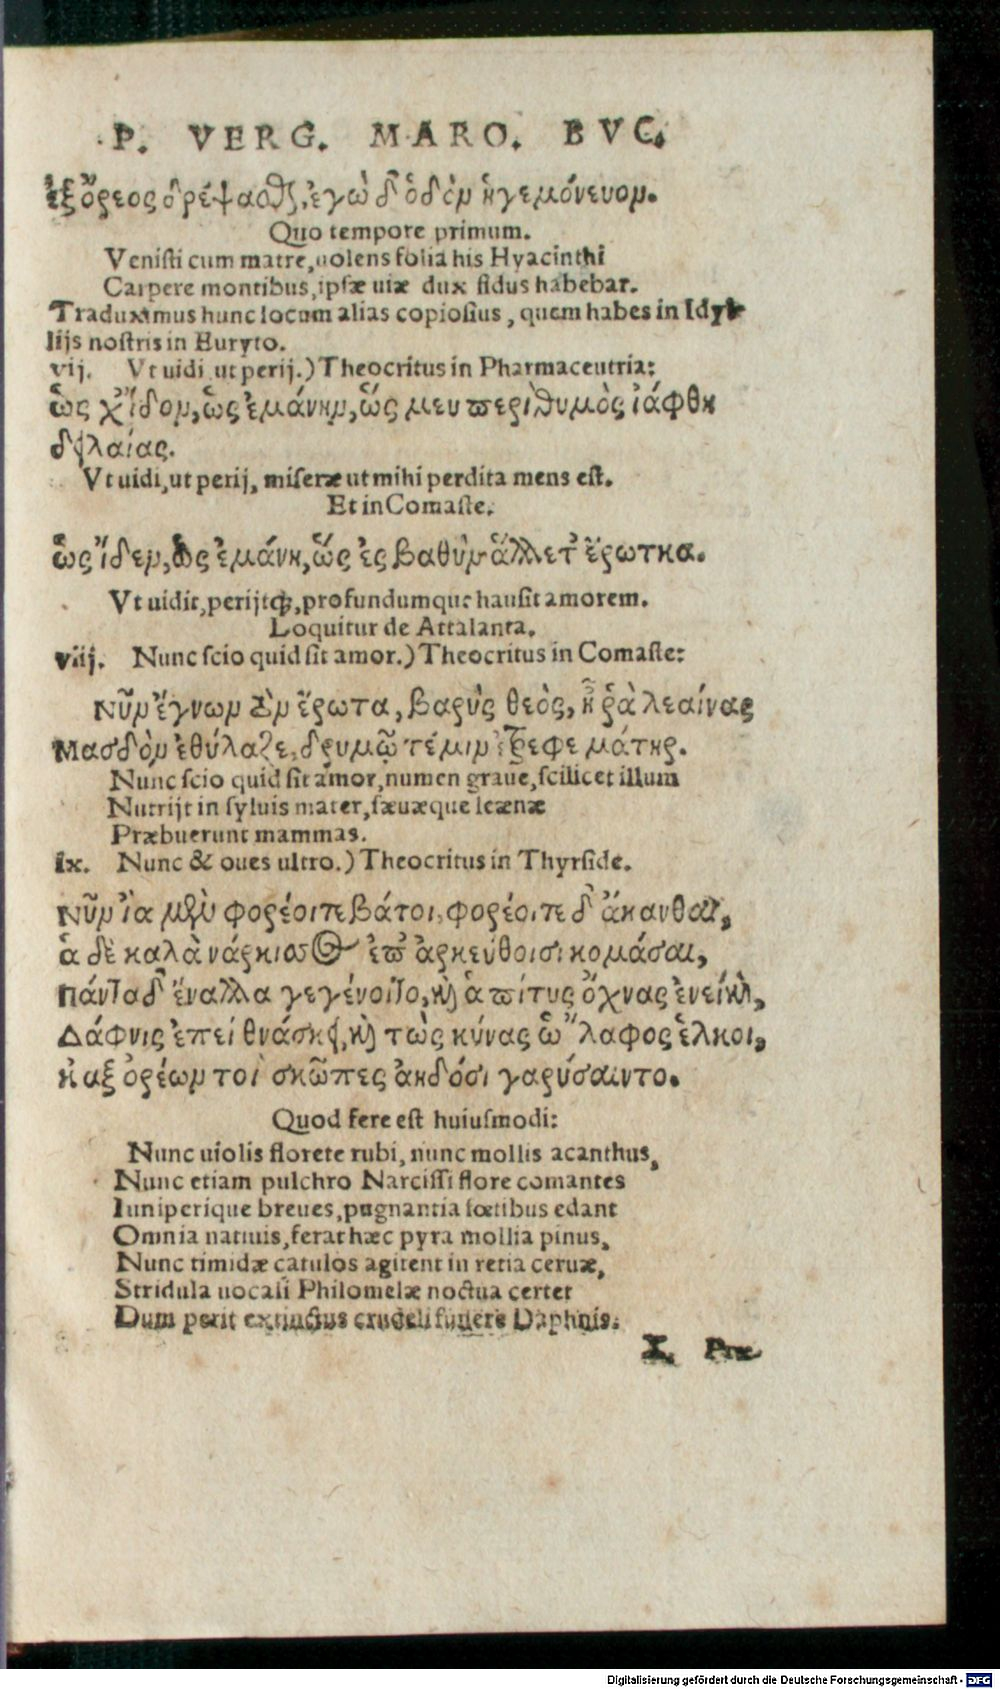 P. VERG. MARO. BVC.
ἐξ ὄρεος δρέψασθαι, ἐγὼ δ' ὁδὸν ἡγεμόνευον.
Quo tempore primum.
Venisti cum matre, uolens folia his Hyacinthi
Carpere montibus, ipsæ uiæ dux fidus habebar.
Traduximus hunc locum alias copiosius, quem habes in Idyl
lijs nostris in Euryto.
vij. Vt uidi ut perij.) Theocritus in Pharmaceutria:
ὡς χ' ἴδον, ὡς ἐμάνην, ὥς μευ περὶ θυμὸς ἰάφθη
δειλαίας.
Vt uidi, ut perij, miseræ ut mihi perdita mens est.
Et in Comaste.
ὡς ἴδεν, ὡς ἐμάνη, ὥς ἐς βαθὺν ἅλλετ' ἔρωτκα.
Vt uidit, perijtq;, profundumque hausit amorem.
Loquitur de Attalanta.
viij. Nunc scio quid sit amor.) Theocritus in Comaste:
Νῦν ἔγνων τὸν ἔρωτα, βαρὺς θεὸς, ἦ ῥὰ λεαίνας
Μασδὸν ἐθύλαζε, δρυμῷ τέ μιν ἔτρεφε μάτηρ.
Nunc scio quid sit amor, numen graue, scilicet illum
Nutrijt in syluis mater, sæuæque leænæ
Præbuerunt mammas.
ix. Nunc & oues ultro.) Theocritus in Thyrside.
Νῦν ἴα μὲν φορέοιτε βάτοι, φορέοιτε δ' ἄκανθαι,
ἁ δὲ καλὰ νάρκισσος ἐπ' ἀρκεύθοισι κομάσαι,
πάντα δ' ἔναλλα γεγένοιτο, καὶ ἁ πίτυς ὄχνας ἐνείκαι,
Δάφνις ἐπεὶ θνάσκει, καὶ τὼς κύνας ὤ'λαφος ἕλκοι,
κ αξ ὀρέων τοὶ σκῶπες ἀηδόσι γαρύσαιντο.
Quod fere est huiusmodi:
Nunc uiolis florete rubi, nunc mollis acanthus,
Nunc etiam pulchro Narcissi flore comantes
Iuniperique breues, pugnantia fœtibus edant
Omnia natiuis, ferat hæc pyra mollia pinus,
Nunc timidæ catulos agitent in retia ceruæ,
Stridula uocali Philomelæ noctua certet
Dum perit extinctus crudeli funere Daphnis.
X. Præ
Digitalisierung gefördert durch die Deutsche Forschungsgemeinschaft - DFG